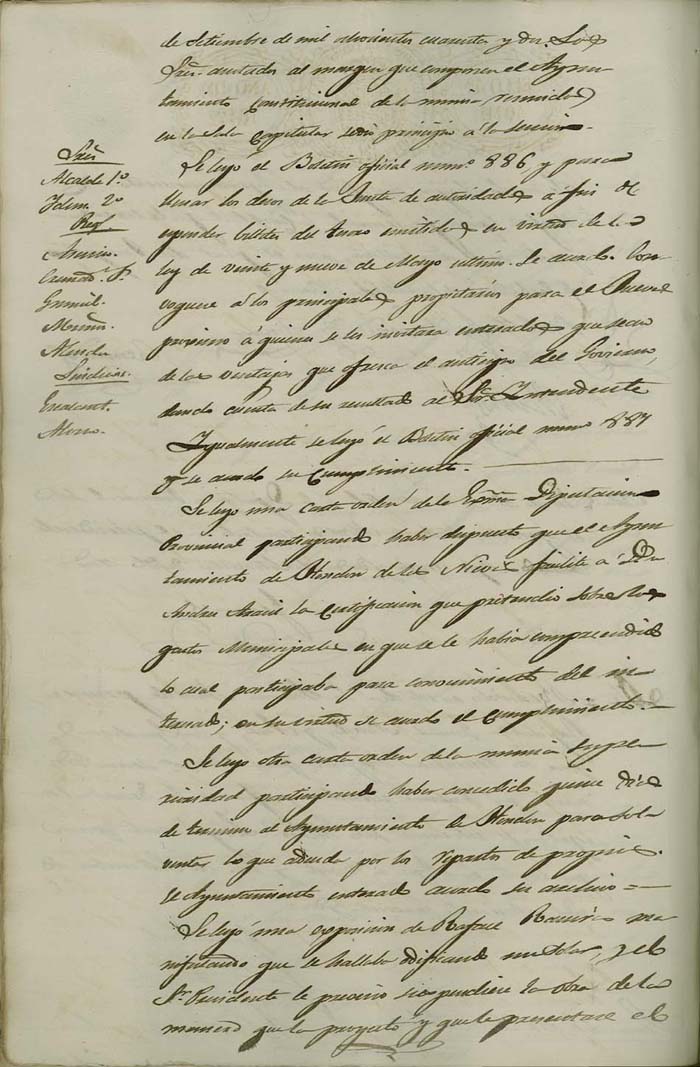 de Setiembre de mil ochocientos cuarenta y dos. Los
Sres. anotados al margen que componen el Ayun-
tamiento Constitucional de la misma reunidos
en la Sala Capitular se dió principio á la sesion.
Sres.
Alcalde 1º
Idem. 2º
Reg.
Moreno.
Síndicos.
Alono.
Se leyó el Boletin oficial num.º 886 y para
llenar los deseos de la Junta de autoridades á fin de
espender billetes del tesoro emitidos en virtud de la
ley de veinte y nueve de Mayo ultimo. Se acordó con-
voquese á los principales propietarios para el Jueves
proximo á quienes se les invitara enterandoles que sean
de las ventajas que ofrece el anticipo del Govierno,
dando cuenta de su resultado al Sr. Intendente
Igualmente se leyó el Boletin oficial num 887
y se acordo su cumplimiento.
Se leyo una carta orden de la Exma Diputacion
Provincial participando haber dispuesto que el Ayun-
tamiento de Hondon de las Nieves facilite á Dn
Andres la Certificacion que pretendio sobre los
gastos Municipales en que se le habia comprendido
lo cual participaba para conocimiento del in-
teresado; en su virtud se acordo el cumplimiento.
Se leyo otra carta orden de la misma Supe-
rioridad participando haber concedido quince dias
de termino al Ayuntamiento de Hondon para sol-
ventar lo que adeuda por los repartos de propios.
El Ayuntamiento enterado acordo su
Se leyó una exposicion de Rafael Ramirez ma-
nifestando que se hallaba edificando un solar, y el
Sr. Presidente le previno suspendiere la obra de la
manera que la proyecto y que le presentase el